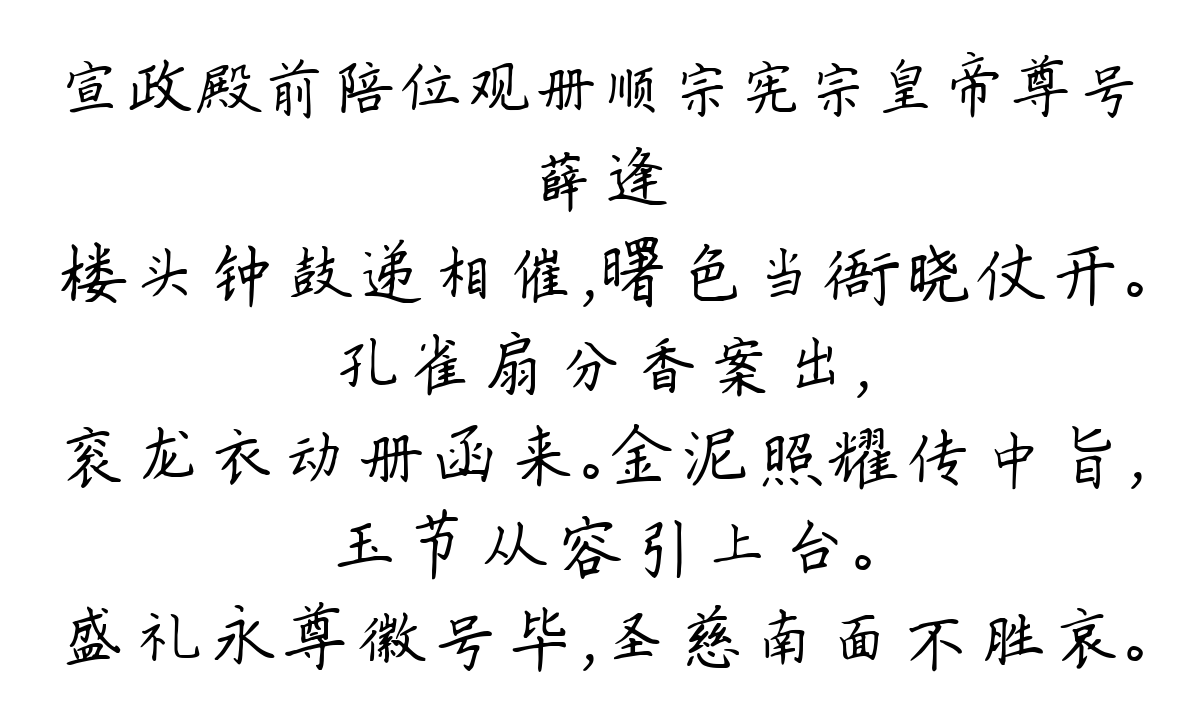 宣政殿前陪位观册顺宗宪宗皇帝尊号
薛逢
楼头钟鼓递相催,曙色当衙晓仗开。
孔雀扇分香案出,
衮龙衣动册函来。金泥照耀传中旨,
玉节从容引上台。
盛礼永尊徽号毕,圣慈南面不胜哀。